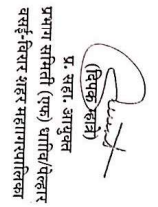 (दिपक म्हात्रे)
प्र. सहा. आयुक्त
प्रभाग समिती (एफ) धानिव/पेल्हार
वसई-विरार शहर महानगरपालिका